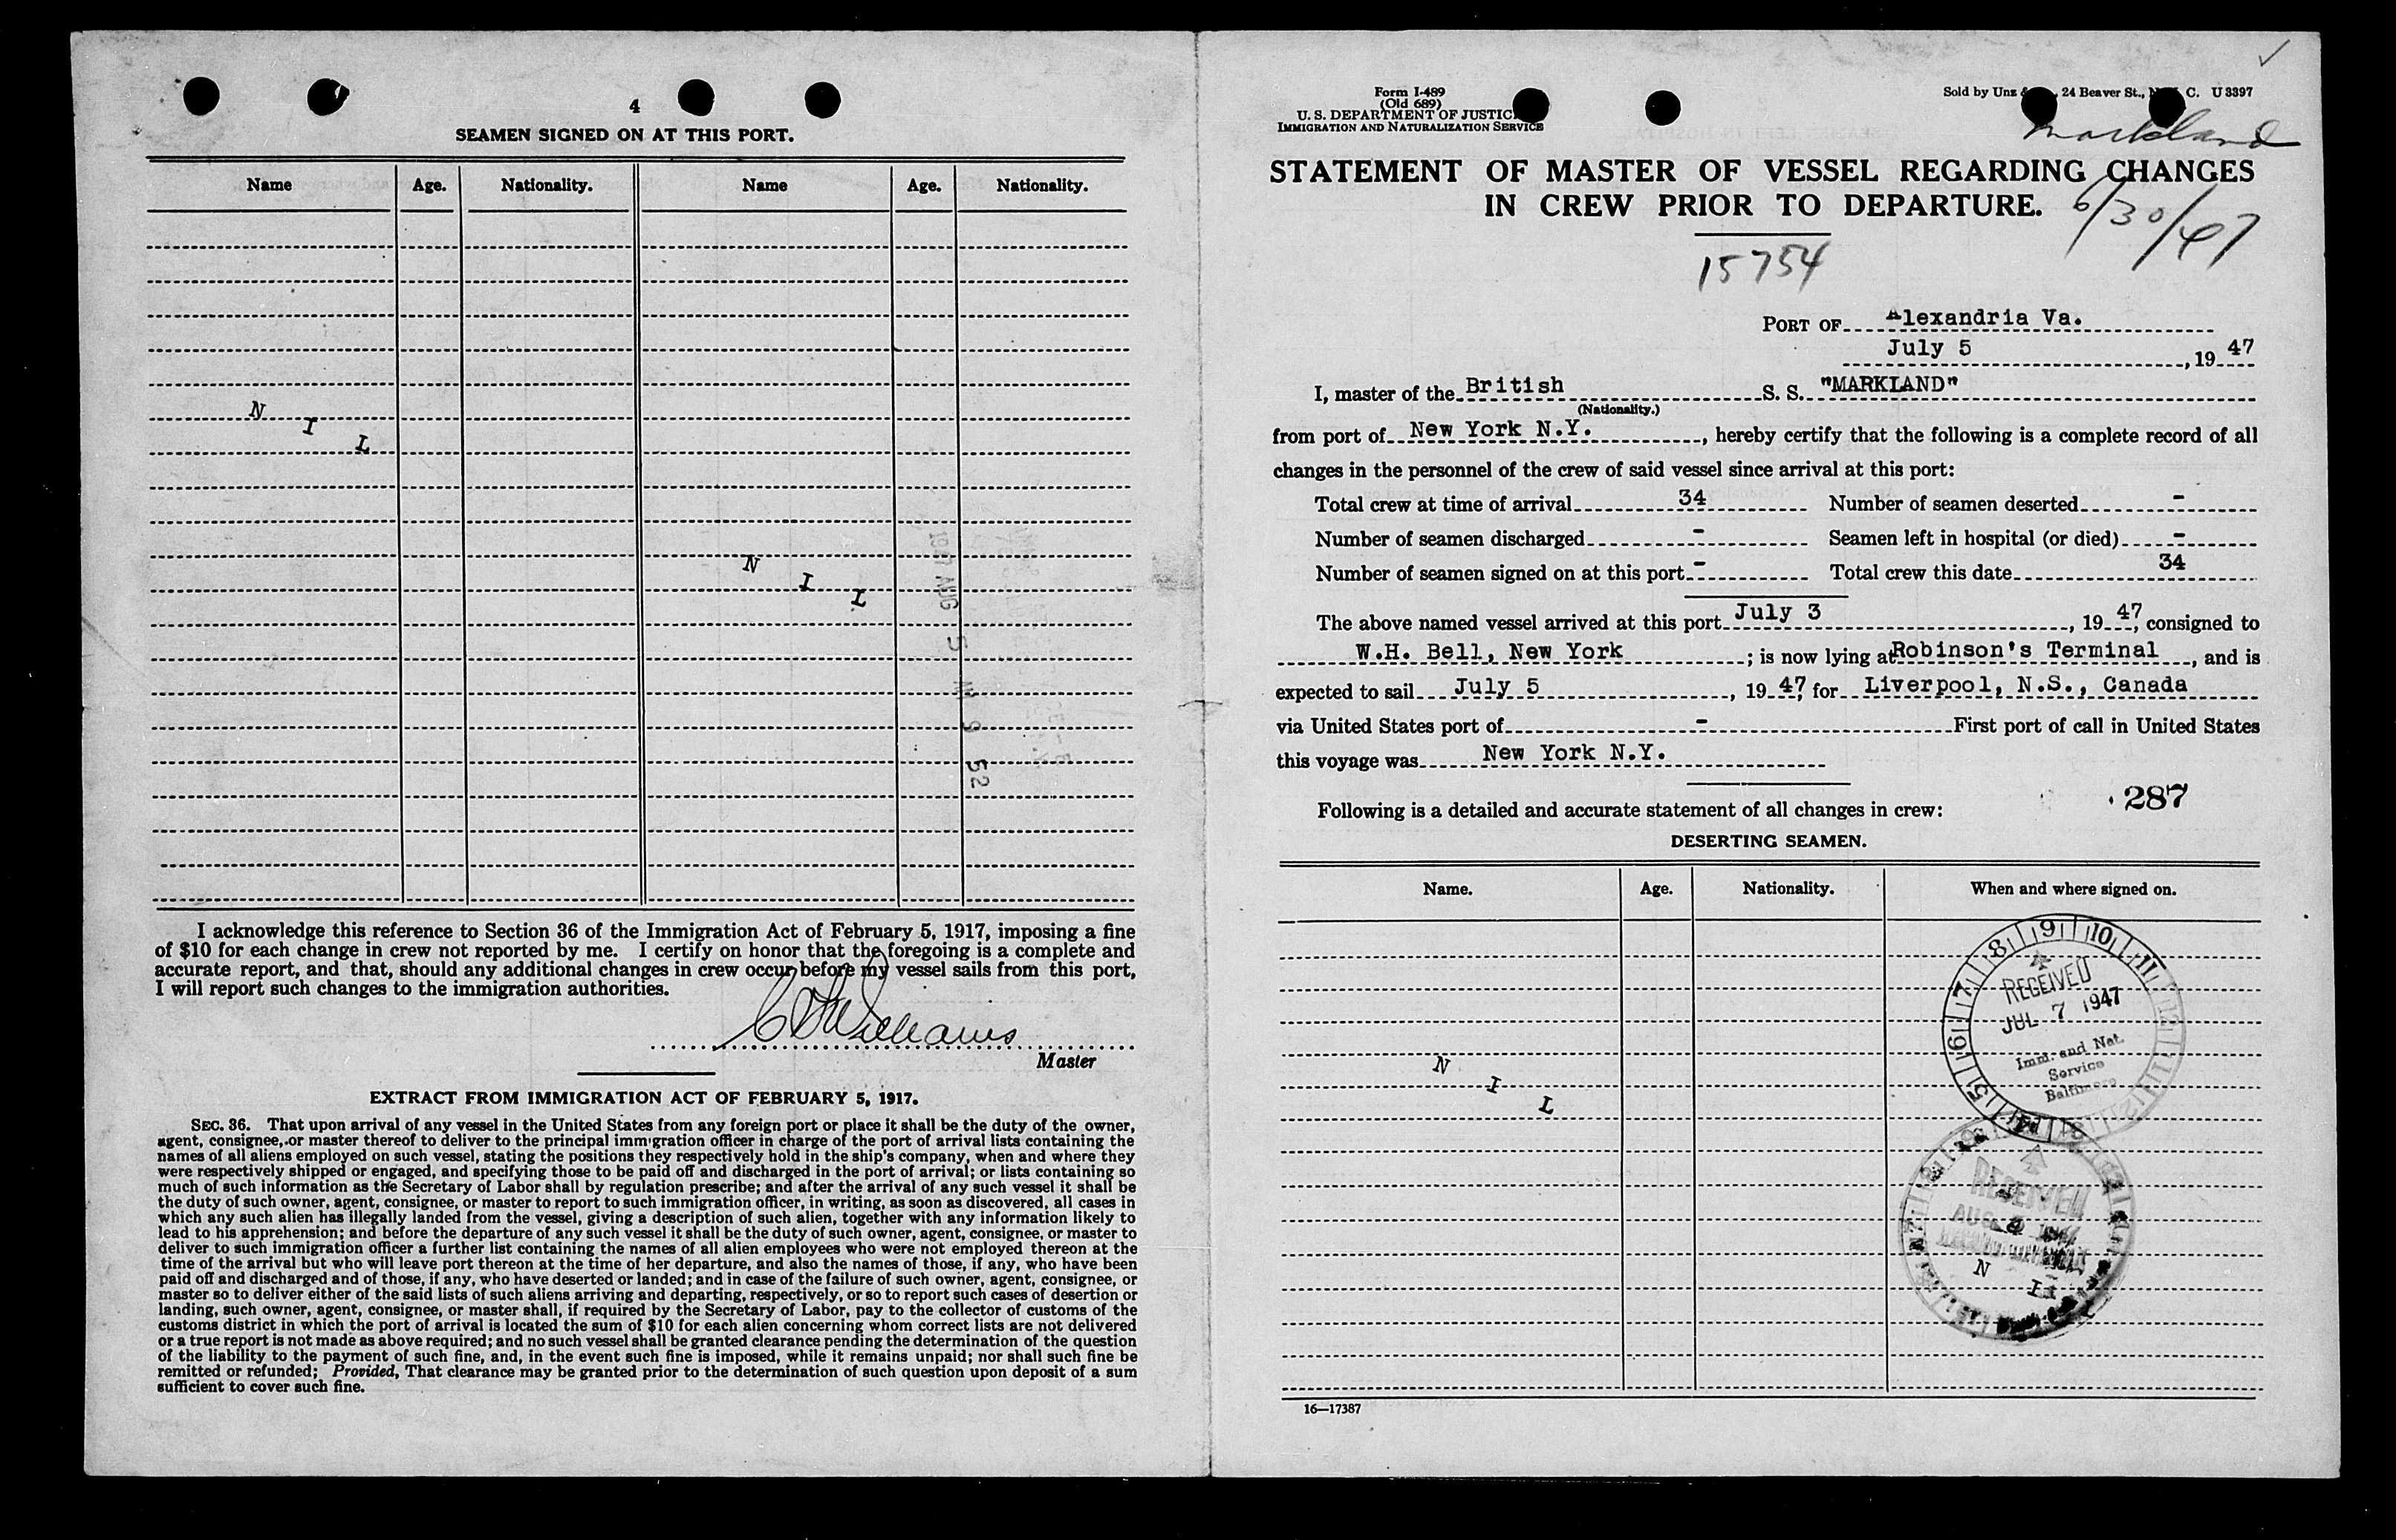 4
SEAMEN SIGNED ON AT THIS PORT.
Name Age. Nationality. Name Age. Nationality.
N I L
N I L
1947 AUG 5 9 52
I acknowledge this reference to Section 36 of the Immigration Act of February 5, 1917, imposing a fine
of $10 for each change in crew not reported by me. I certify on honor that the foregoing is a complete and
accurate report, and that, should any additional changes in crew occur before my vessel sails from this port,
I will report such changes to the immigration authorities.
Williams
Master
EXTRACT FROM IMMIGRATION ACT OF FEBRUARY 5, 1917.
SEC. 36. That upon arrival of any vessel in the United States from any foreign port or place it shall be the duty of the owner,
agent, consignee, or master thereof to deliver to the principal immigration officer in charge of the port of arrival lists containing the
names of all aliens employed on such vessel, stating the positions they respectively hold in the ship's company, when and where they
were respectively shipped or engaged, and specifying those to be paid off and discharged in the port of arrival; or lists containing so
much of such information as the Secretary of Labor shall by regulation prescribe; and after the arrival of any such vessel it shall be
the duty of such owner, agent, consignee, or master to report to such immigration officer, in writing, as soon as discovered, all cases in
which any such alien has illegally landed from the vessel, giving a description of such alien, together with any information likely to
lead to his apprehension; and before the departure of any such vessel it shall be the duty of such owner, agent, consignee, or master to
deliver to such immigration officer a further list containing the names of all alien employees who were not employed thereon at the
time of the arrival but who will leave port thereon at the time of her departure, and also the names of those, if any, who have been
paid off and discharged and of those, if any, who have deserted or landed; and in case of the failure of such owner, agent, consignee, or
master so to deliver either of the said lists of such aliens arriving and departing, respectively, or so to report such cases of desertion or
landing, such owner, agent, consignee, or master shall, if required by the Secretary of Labor, pay to the collector of customs of the
customs district in which the port of arrival is located the sum of $10 for each alien concerning whom correct lists are not delivered
or a true report is not made as above required; and no such vessel shall be granted clearance pending the determination of the question
of the liability to the payment of such fine, and, in the event such fine is imposed, while it remains unpaid; nor shall such fine be
remitted or refunded; Provided, That clearance may be granted prior to the determination of such question upon deposit of a sum
sufficient to cover such fine.
Form I-489
(Old 689)
U. S. DEPARTMENT OF JUSTIC
IMMIGRATION AND NATURALIZATION SERVICE
Sold by Unz 24 Beaver St., C. U 3397
Markland
STATEMENT OF MASTER OF VESSEL REGARDING CHANGES
IN CREW PRIOR TO DEPARTURE.
6/30/47
15754
PORT OF Alexandria Va.
July 5, 19 47
I, master of the British S. S. "MARKLAND"
(Nationality.)
from port of New York N.Y., hereby certify that the following is a complete record of all
changes in the personnel of the crew of said vessel since arrival at this port:
Total crew at time of arrival 34 Number of seamen deserted -
Number of seamen discharged - Seamen left in hospital (or died) -
Number of seamen signed on at this port - Total crew this date 34
The above named vessel arrived at this port July 3, 19 47, consigned to
W.H. Bell, New York; is now lying at Robinson's Terminal, and is
expected to sail July 5, 19 47, for Liverpool, N.S., Canada
via United States port of - First port of call in United States
this voyage was New York N.Y.
287
Following is a detailed and accurate statement of all changes in crew:
DESERTING SEAMEN.
Name. Age. Nationality. When and where signed on.
N I L
7 8 9 10 11 12 1 2 3 4 5 6
RECEIVED
JUL 7 1947
Imm. and Nat.
Service
Baltimore
RECEIVED
AUG
N I L
16—17387